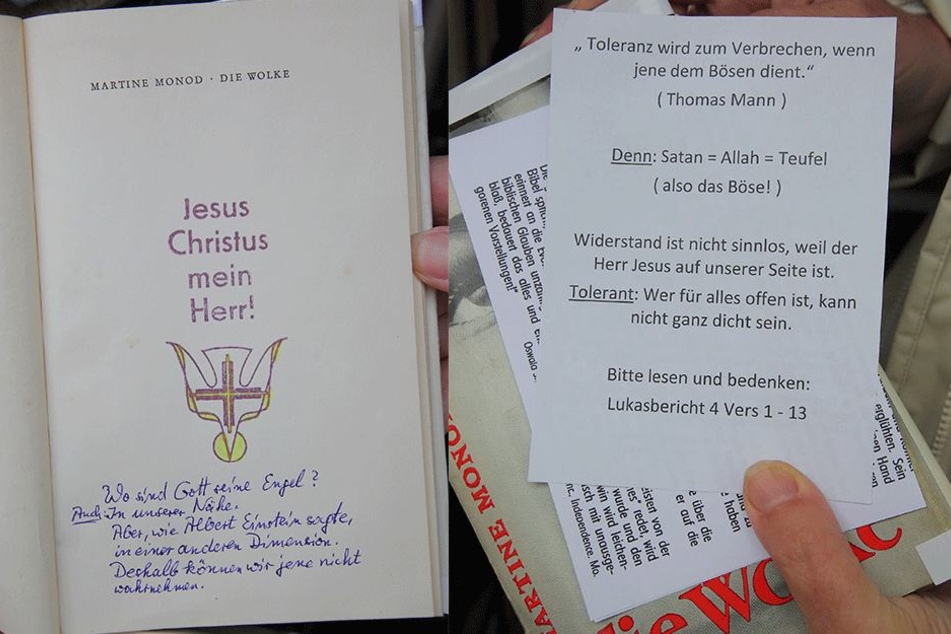 MARTINE MONOD · DIE WOLKE
Jesus
Christus
mein
Herr!
Wo sind Gott seine Engel?
Auch: In unserer Nähe.
Aber, wie Albert Einstein sagte,
in einer anderen Dimension.
Deshalb können wir jene nicht
wahrnehmen.
„ Toleranz wird zum Verbrechen, wenn
jene dem Bösen dient.“
( Thomas Mann )
Denn: Satan = Allah = Teufel
( also das Böse! )
Widerstand ist nicht sinnlos, weil der
Herr Jesus auf unserer Seite ist.
Tolerant: Wer für alles offen ist, kann
nicht ganz dicht sein.
Bitte lesen und bedenken:
Lukasbericht 4 Vers 1 - 13
Bibel
erinnert an die
biblischen Glauben
blaß, bedauert das alles und
gorenen Vorstellungen!“
Oswald
erglühten. Sein
Hand
über die
haben
er auf die
von der
redet, wird
wurde und den
win wird leichen-
isch mit unausge-
Independence, Mo.
MARTINE MONO
die Wolke